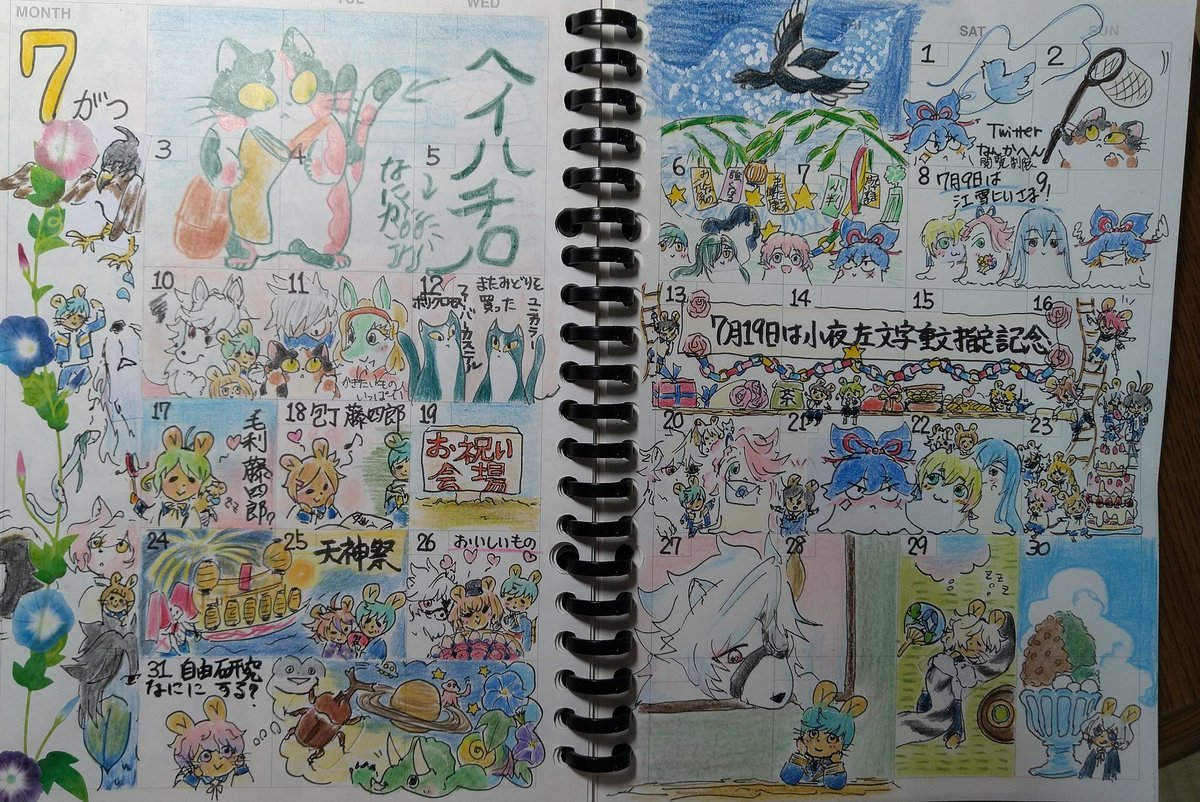 MONTH
TUE
WED
THU
FRI
SAT
SUN
7がつ
ヘイハチロ
1
2
Twitter
なんかへん
閲覧制限
3
4
5
6
7
8
7月9日は
江雪にいさま!
9
10
11
かきたいもの
いっぱい!
12
またみどりを
買った
ポリクロモス
ファーバーカステル
ユニカラー
13
14
15
16
7月19日は小夜左文字重文指定記念
茶
17
毛利藤四郎
18
包丁藤四郎
19
お祝い
会場
20
21
22
23
24
25
天神祭
26
おいしいもの
27
28
29
zzz
30
31
自由研究
なにに する?